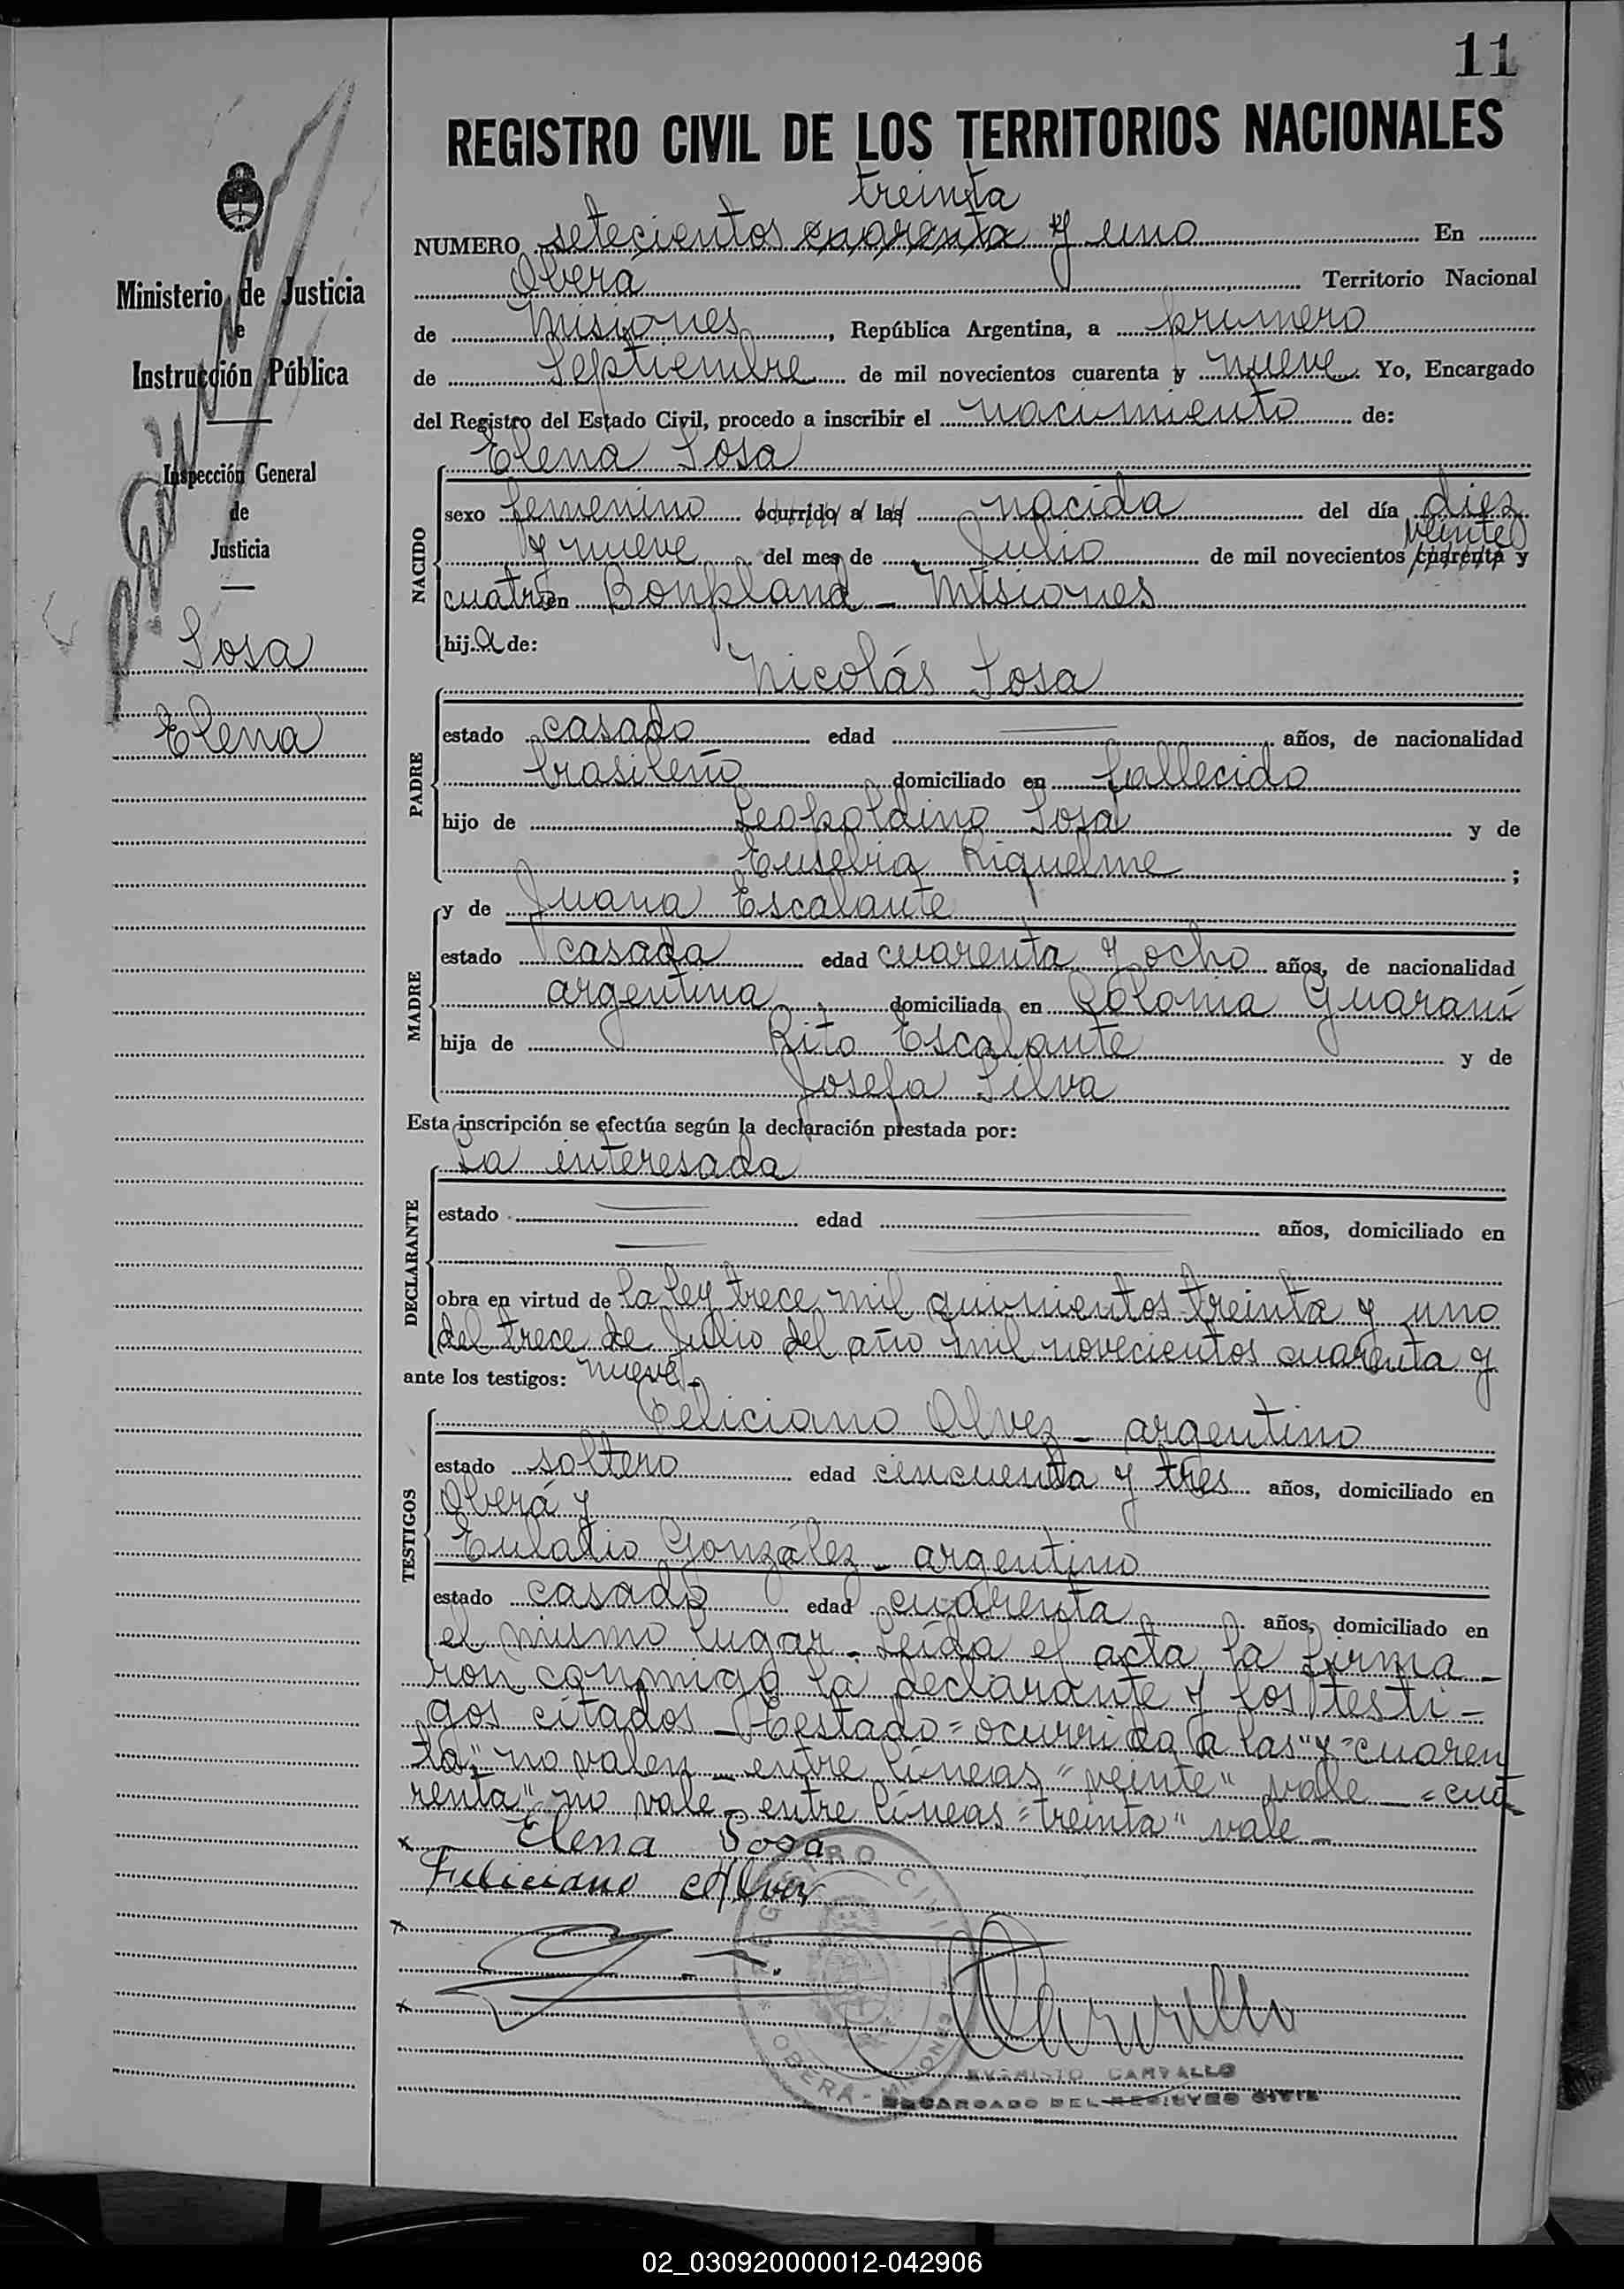 11
REGISTRO CIVIL DE LOS TERRITORIOS NACIONALES
treinta
NUMERO setecientos cuarenta y uno En
Obera Territorio Nacional
de Misiones, República Argentina, a primero
de Septiembre de mil novecientos cuarenta y nueve. Yo, Encargado
del Registro del Estado Civil, procedo a inscribir el nacimiento de:
Elena Sosa
NACIDO
sexo femenino ocurrido a las nacida del día diez
veinte
y nueve del mes de Julio de mil novecientos cuarenta y
cuatro en Bonpland - Misiones
hija de:
Nicolás Sosa
PADRE
estado casado edad años, de nacionalidad
brasileño domiciliado en fallecido
hijo de Leopoldino Sosa y de
Eusebia Riquelme ;
y de Juana Escalante
MADRE
estado casada edad cuarenta y ocho años, de nacionalidad
argentina domiciliada en Colonia Guaraní
hija de Rito Escalante y de
Josefa Silva
Esta inscripción se efectúa según la declaración prestada por:
La interesada
DECLARANTE
estado edad años, domiciliado en
obra en virtud de la ley trece mil quinientos treinta y uno
del trece de Julio del año mil novecientos cuarenta y
ante los testigos: nueve.-
Feliciano Alvez - argentino
TESTIGOS
estado soltero edad cincuenta y tres años, domiciliado en
Oberá y
Eulalio González - argentino
estado casado edad cuarenta años, domiciliado en
el mismo lugar. Leída el acta, la firma-
ron conmigo la declarante y los testi-
gos citados - Testado = ocurrido a las" y "cuaren
ta" no valen - entre líneas "veinte" vale - = cua-
renta" no vale - entre líneas = treinta" vale -
x Elena Sosa
Feliciano Alvez
x
x
Carvallo
REGISTRO CIVIL
* OBERA - MISIONES *
EVARISTO CARVALLO
ENCARGADO DEL REGISTRO CIVIL
Ministerio de Justicia
e
Instrucción Pública
Inspección General
de
Justicia
Sosa
Elena
02_030920000012-042906